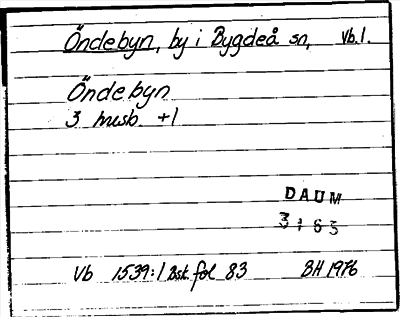 Öndebyn, by i Bygdeå sn, Vb.l.
Öndebyn
3 husb. +1
DAUM
3165
Vb 1539:1 Bsk. fol 83 BH 1976